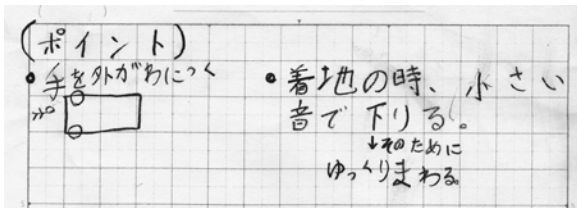 (ポイント)
•手を外がわにつく
•着地の時、小さい
音で下りる。
↓そのために
ゆっくりまわる。